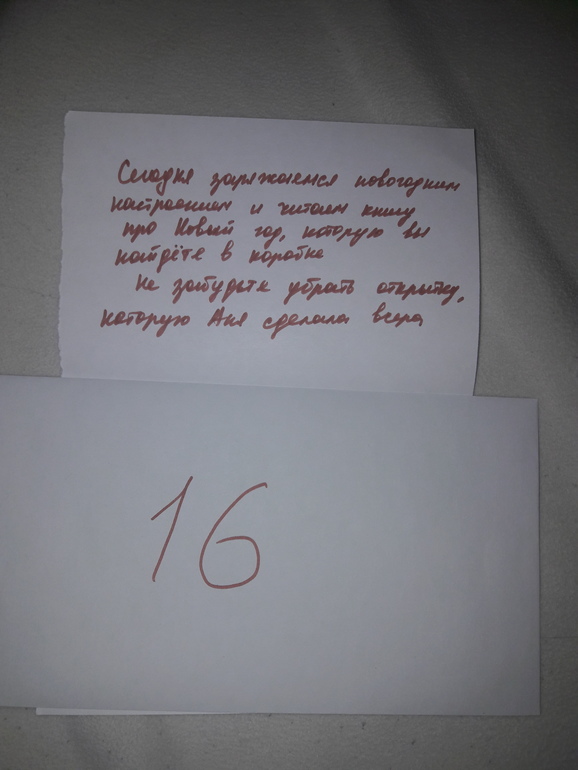 Сегодня заряжаемся новогодним
настроением и читаем книгу
про Новый год, которую вы
найдёте в коробке
Не забудьте убрать открытку,
которую Аня сделала вчера
16